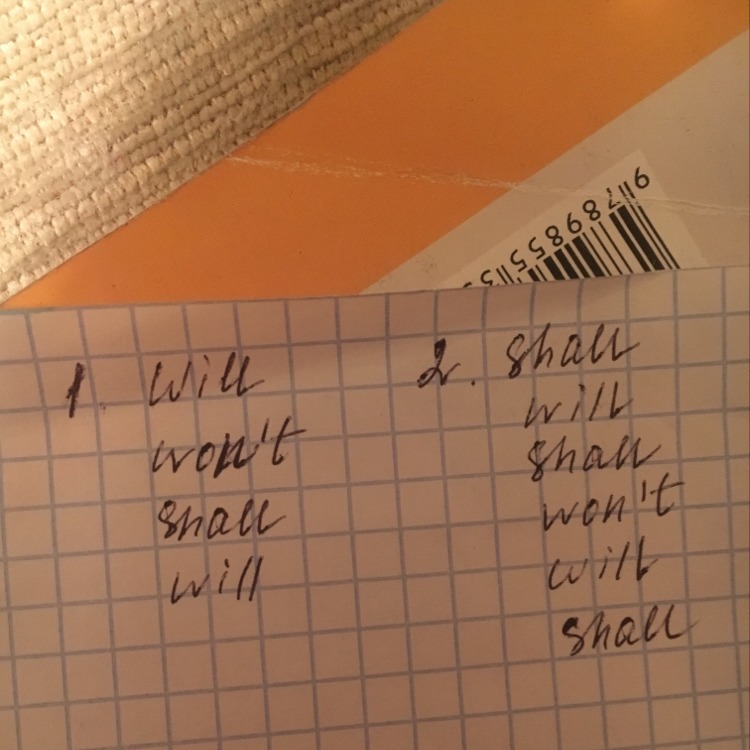 9 789855 3
1. Will
won't
shall
will
2. shall
will
shall
won't
will
shall